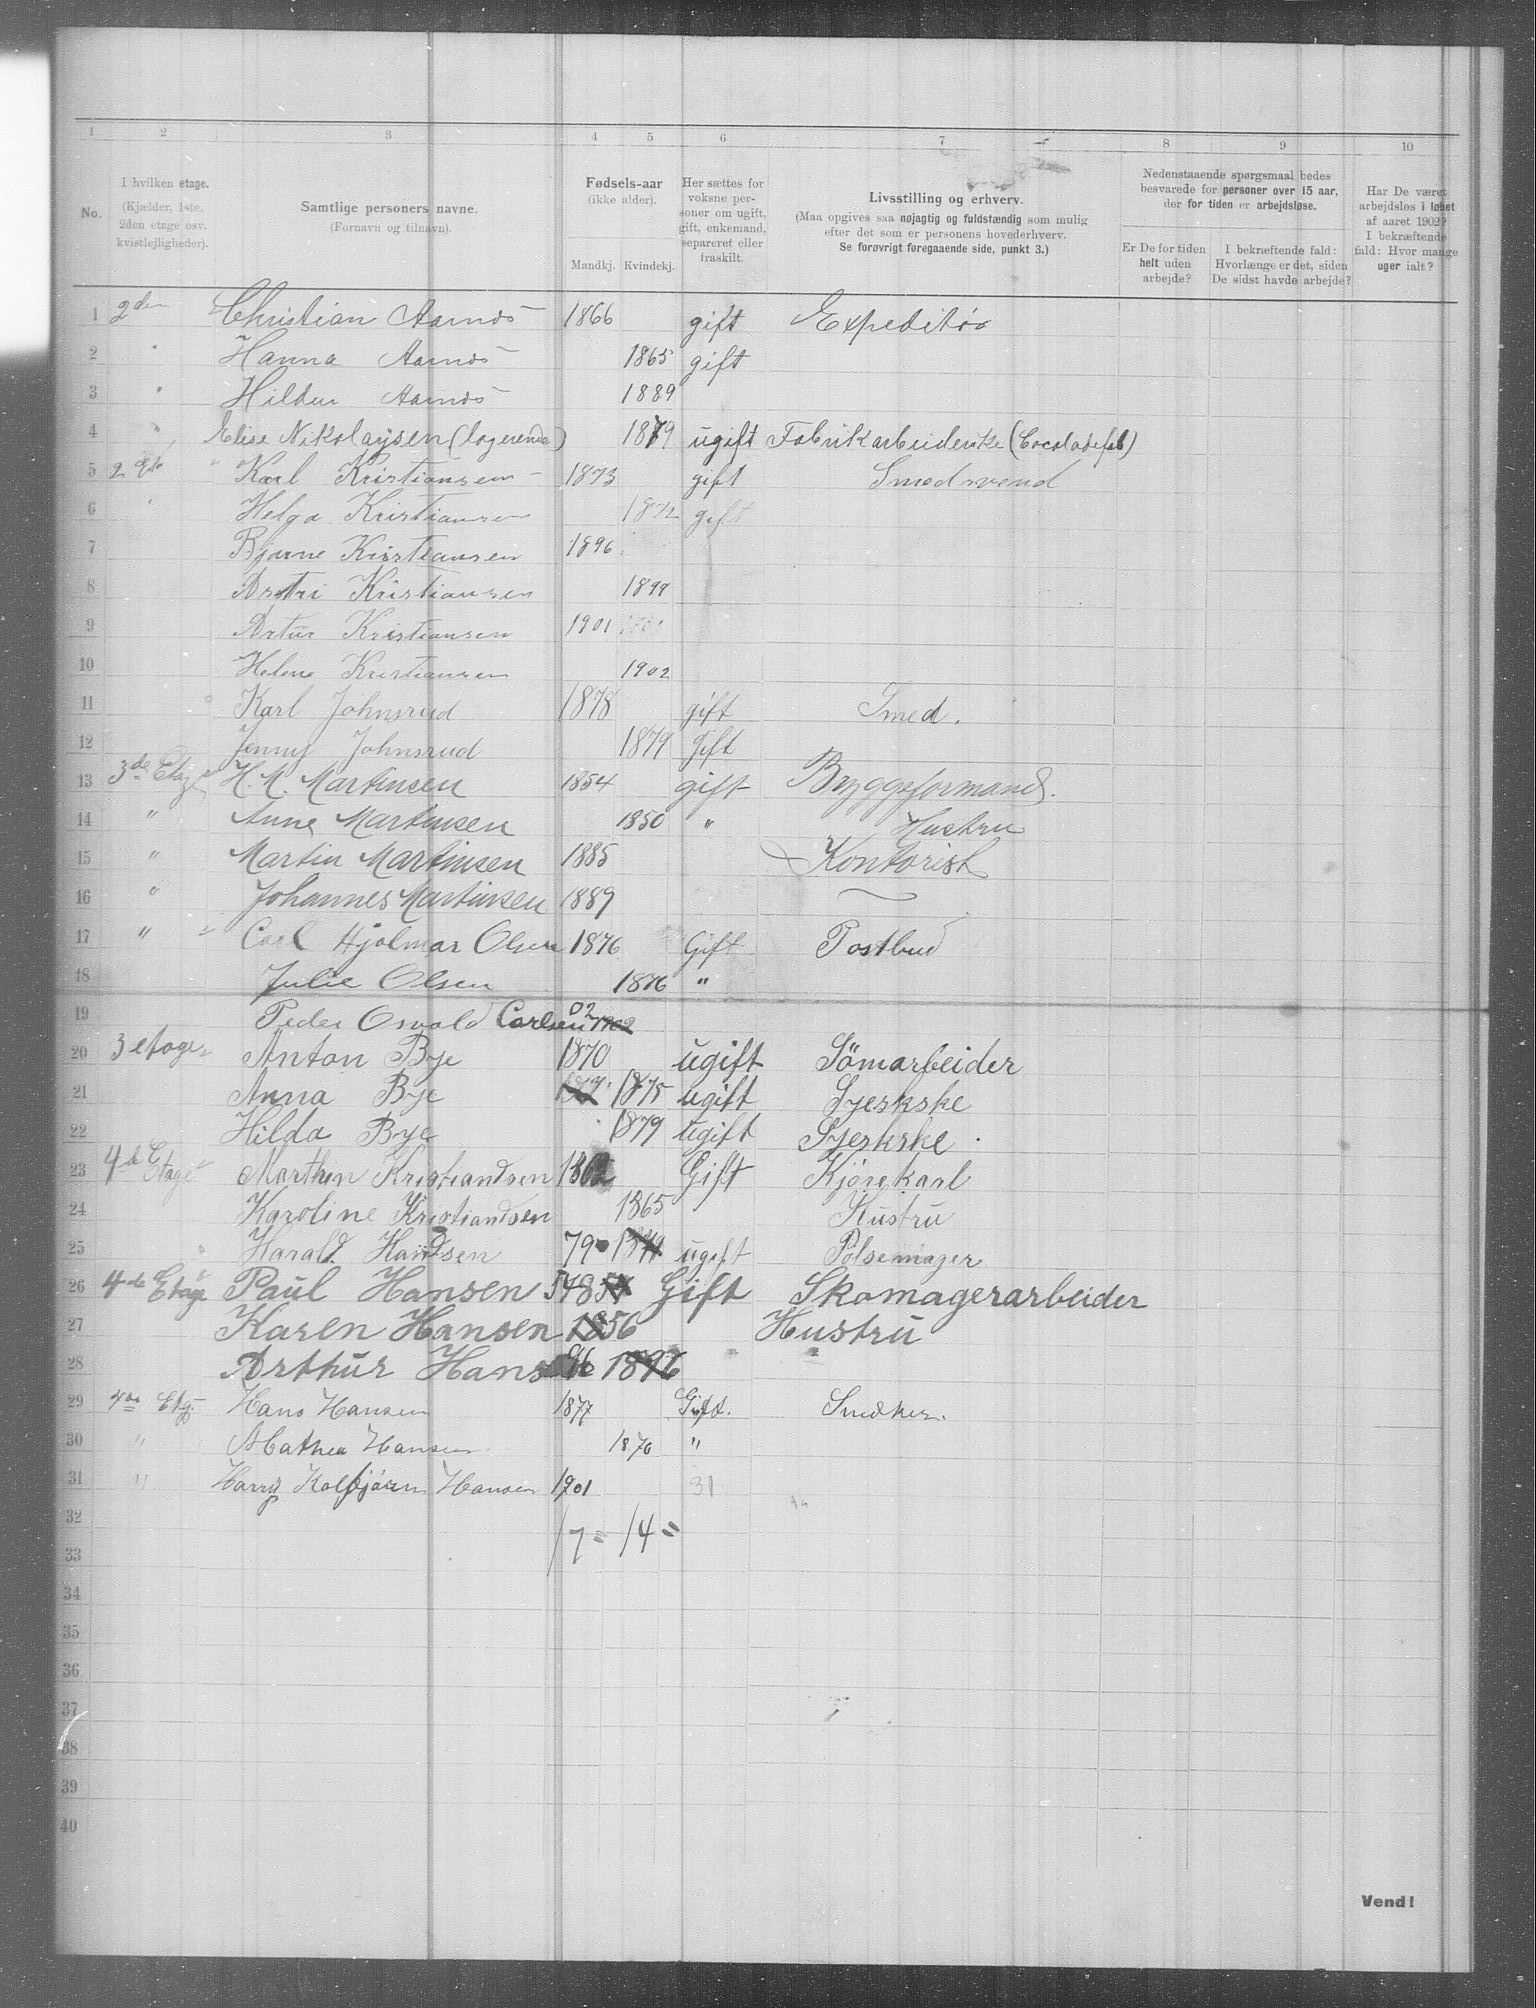 1 2 3 4 5 6 7 8 9 10
No.
I hvilken etage.
(Kjælder, 1ste,
2den etage osv.
kvistlejligheder).
Samtlige personers navne.
(Fornavn og tilnavn).
Fødsels-aar
(ikke alder).
Mandkj. Kvindekj.
Her sættes for
voksne per-
soner om ugift,
gift, enkemand,
separeret eller
fraskilt.
Livsstilling og erhverv.
(Maa opgives saa nøjagtig og fuldstændig som mulig
efter det som er personens hovederhverv.
Se forøvrigt foregaaende side, punkt 3.)
Nedenstaaende spørgsmaal bedes
besvarede for personer over 15 aar,
der for tiden er arbejdsløse.
Er De for tiden
helt uden
arbejde?
I bekræftende fald:
Hvorlænge er det, siden
De sidst havde arbejde?
Har De været
arbejdsløs i løbet
af aaret 1902?
I bekræftende
fald: Hvor mange
uger ialt?
1 2den Christian Aarnæs 1866 gift Expeditør
2 " Hanna Aarnæs 1865 gift
3 " Hildur Aarnæs 1889
4 " Elise Nikolaysen (logerende) 1879 ugift Fabrikarbeiderske (Cocoladefab)
5 2 Et. Karl Kristiansen 1873 gift Smedsvend
6 " Helga Kristiansen 1872 gift
7 Bjarne Kristiansen 1896
8 Astri Kristiansen 1899
9 Artur Kristiansen 1901
10 Helene Kristiansen 1902
11 Karl Johnsrud 1878 gift Smed.
12 Jenny Johnsrud 1879 Gift
13 3de Etage H. M. Martinsen 1854 gift Byggeformand.
14 " Anne Martinsen 1850 " Hustru
15 " Martin Martinsen 1885 Kontorist
16 " Johannes Martinsen 1889
17 " Carl Hjalmar Olsen 1876 Gift Postbud
18 Julie Olsen 1876 "
19 Peder Osvald Carlsen 02 1902
20 3 etage Anton Bye 1870 ugift Sömarbeider
21 Anna Bye 1875 ugift Syeskske
22 Hilda Bye 1879 ugift Syeskske.
23 4de Etage Marthin Kristiandsen Gift Kjörekarl
24 Karoline Kristiandsen 1865 Hustru
25 Harald Handsen 79 ugift Pölsemager
26 4de Etage Paul Hansen 54 Gift Skomagerarbeider
27 Karen Hansen 1856 Hustru
28 Arthur Hans 96 1896
29 4de Etg. Hans Hansen 1877 Gift. Snedker.
30 " Mathea Hansen 1870 "
31 " Harry Kolbjörn Hansen 1901 31
32 17 = 14 =
33
34
35
36
37
38
39
40
Vend!